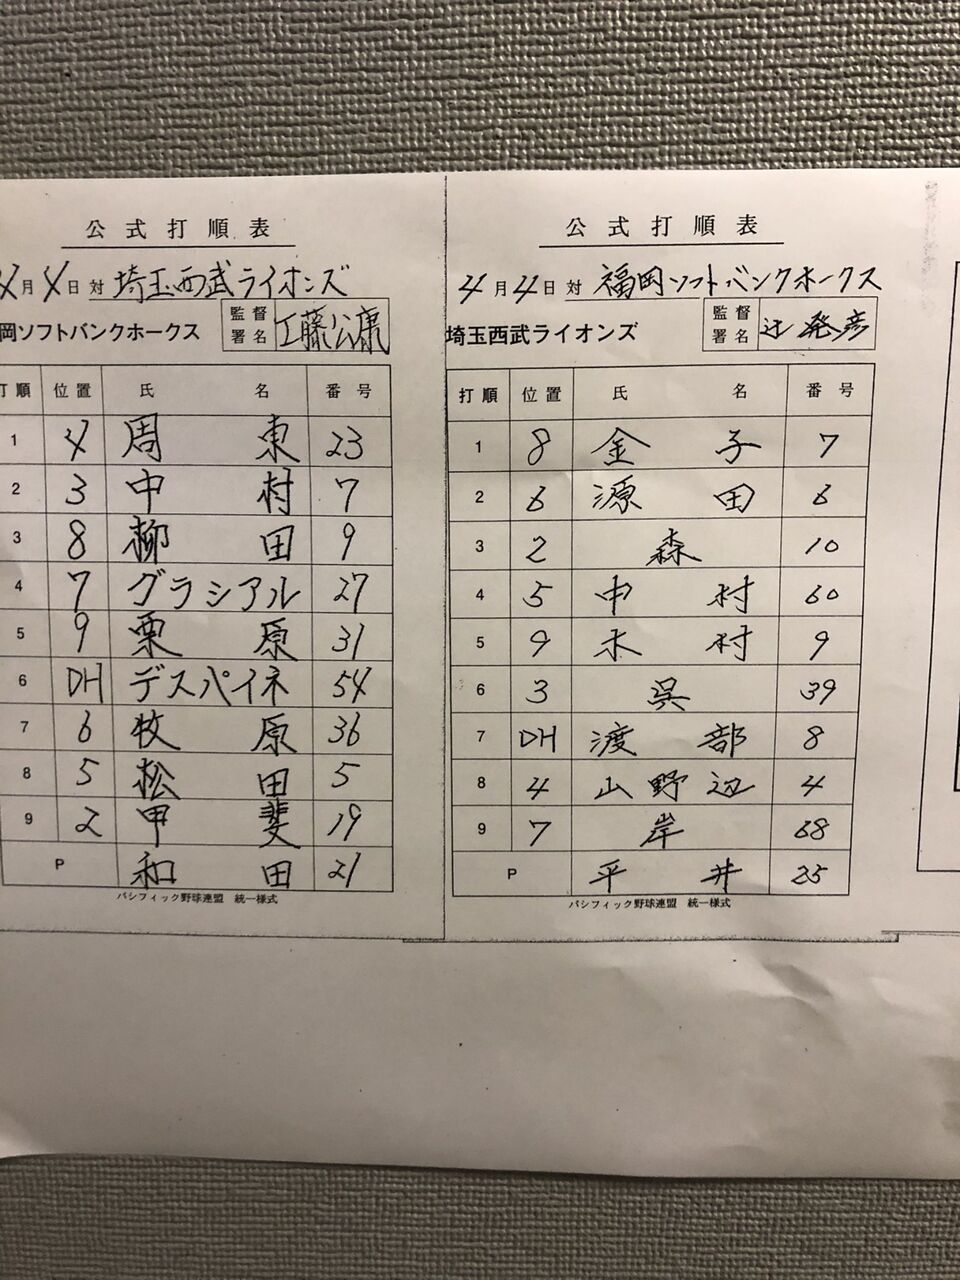 公式打順表
4月4日対 埼玉西武ライオンズ
岡ソフトバンクホークス 監督署名 工藤公康
打順 位置 氏名 番号
1 4 周東 23
2 3 中村 7
3 8 柳田 9
4 7 グラシアル 27
5 9 栗原 31
6 DH デスパイネ 54
7 6 牧原 36
8 5 松田 5
9 2 甲斐 19
P 和田 21
パシフィック野球連盟 統一様式
公式打順表
4月4日対 福岡ソフトバンクホークス
埼玉西武ライオンズ 監督署名 辻発彦
打順 位置 氏名 番号
1 8 金子 7
2 6 源田 6
3 2 森 10
4 5 中村 60
5 9 木村 9
6 3 呉 39
7 DH 渡部 8
8 4 山野辺 4
9 7 岸 68
P 平井 25
パシフィック野球連盟 統一様式